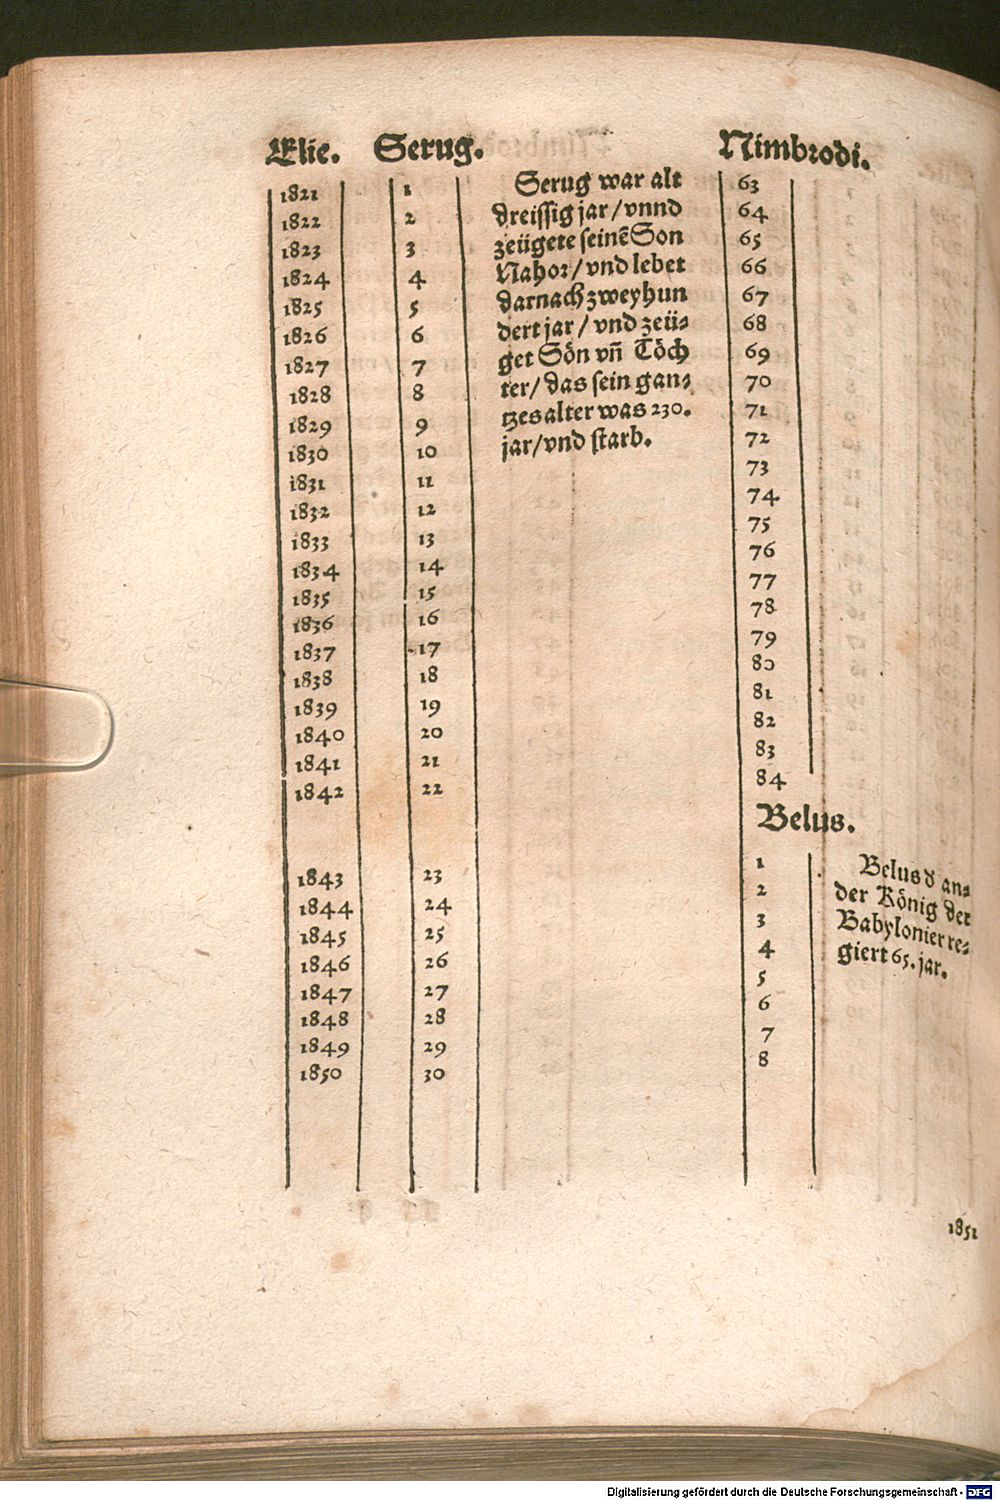 Elie. Serug. Nimbrodi.
1821 1 Serug war alt 63
1822 2 dreissig jar / vnnd 64
1823 3 zeügete seinē Son 65
1824 4 Nahor / vnd lebet 66
1825 5 darnach zweyhun 67
1826 6 dert jar / vnd zeü⸗ 68
1827 7 get Sön vñ Töch 69
1828 8 ter / das sein gan⸗ 70
1829 9 tzes alter was 230. 71
1830 10 jar / vnd starb. 72
1831 11 73
1832 12 74
1833 13 75
1834 14 76
1835 15 77
1836 16 78
1837 17 79
1838 18 80
1839 19 81
1840 20 82
1841 21 83
1842 22 84
Belus.
1843 23 1 Belus d an⸗
1844 24 2 der König der
1845 25 3 Babylonier re⸗
1846 26 4 giert 65. jar.
1847 27 5
1848 28 6
1849 29 7
1850 30 8
1851
Digitalisierung gefördert durch die Deutsche Forschungsgemeinschaft - DFG